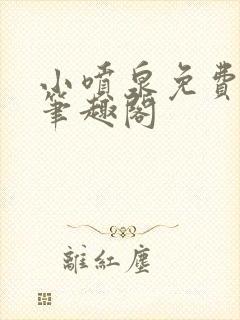 小噴泉免費
筆趣閣
離紅塵